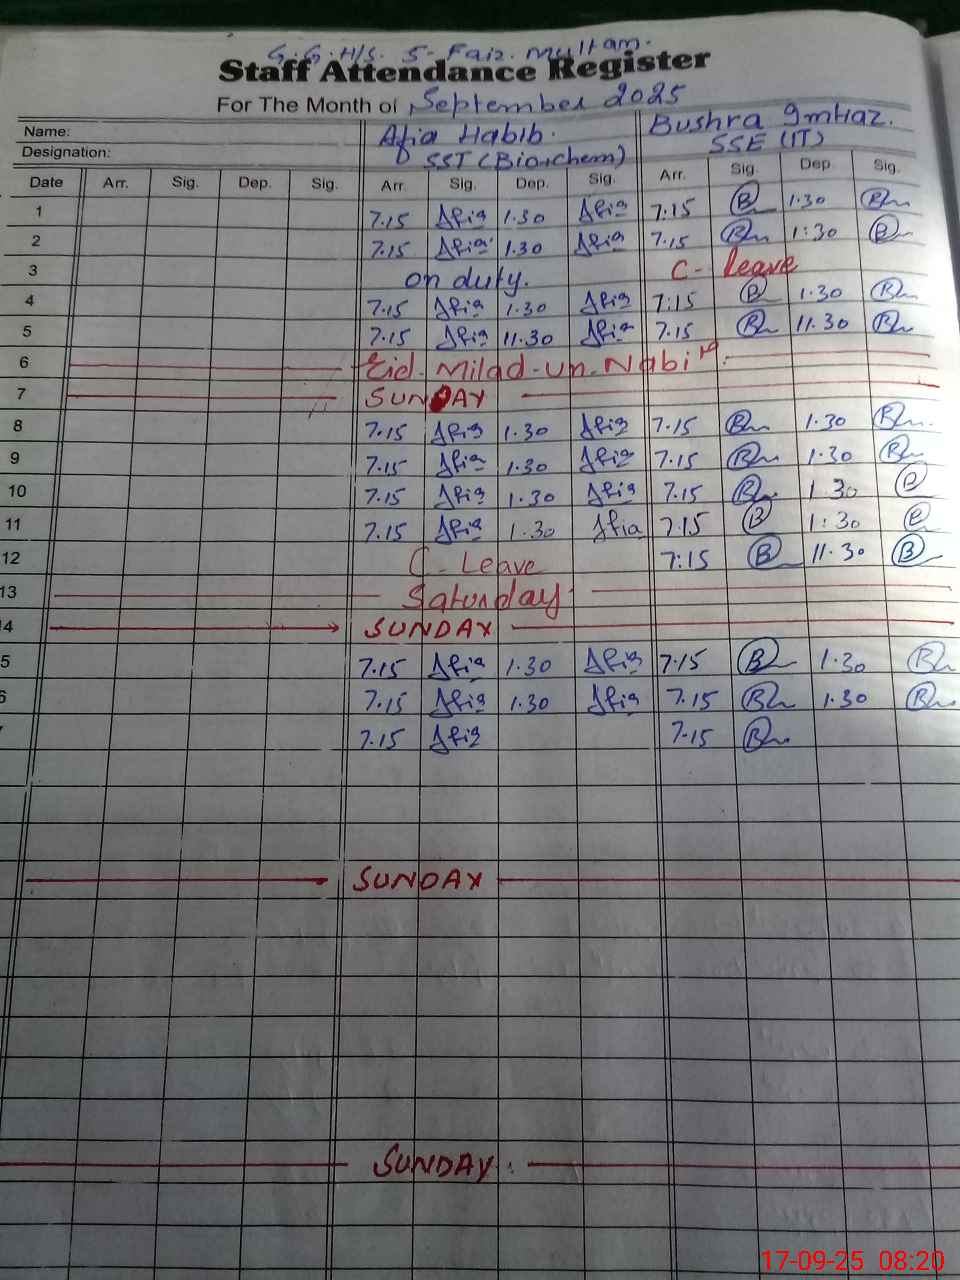 G.G.H/S. 5-Faiz. Multan.
Staff Attendance Register
For The Month of September 2025
Name: Afia Habib. Bushra Imtiaz.
Designation: SST (Bio-chem) SSE (IT)
Date Arr. Sig. Dep. Sig. Arr. Sig. Dep. Sig. Arr. Sig. Dep. Sig.
1 7.15 Afia 1.30 Afia 7:15 B 1.30
2 7.15 Afia 1.30 Afia 7.15 1:30 B
3 on duty. C- leave
4 7.15 Afia 1.30 Afia 7:15 B 1.30
5 7.15 Afia 11.30 Afia 7.15 11.30
6 Eid-Milad-un-Nabi
7 SUNDAY
8 7.15 Afia 1.30 Afia 7.15 1.30
9 7.15 Afia 1.30 Afia 7.15 1.30
10 7.15 Afia 1.30 Afia 7.15 1 30
11 7.15 Afia 1.30 Afia 7.15 B 1:30
12 C- Leave 7:15 B 11.30 B
13 Saturday
4 SUNDAY
5 7.15 Afia 1.30 Afia 7.15 B 1.30
6 7.15 Afia 1.30 Afia 7.15 1.30
7.15 Afia 7.15
SUNDAY
SUNDAY.
17-09-25 08:20